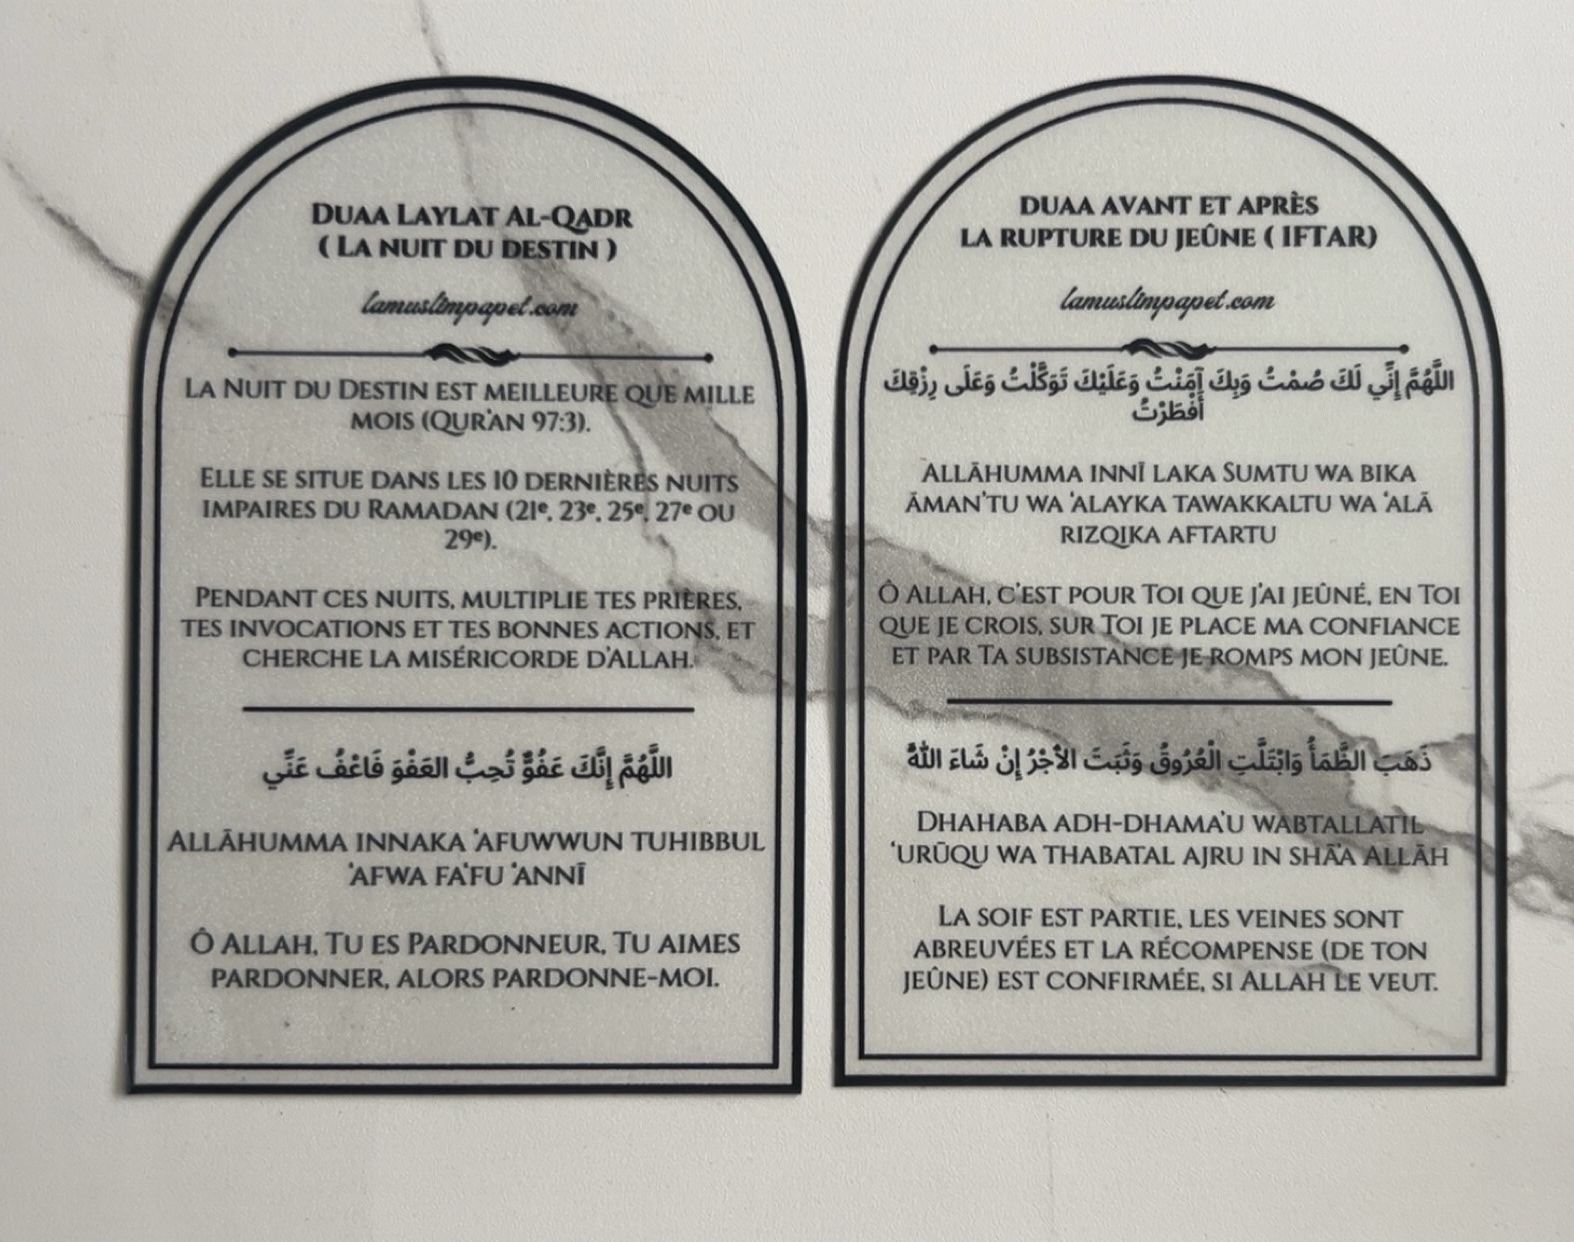 Duaa Laylat Al-Qadr
( La nuit du destin )
lamuslimpapet.com
La Nuit du Destin est meilleure que mille
mois (Qur'an 97:3).
Elle se situe dans les 10 dernières nuits
impaires du Ramadan (21ᵉ, 23ᵉ, 25ᵉ, 27ᵉ ou
29ᵉ).
Pendant ces nuits, multiplie tes prières,
tes invocations et tes bonnes actions, et
cherche la miséricorde d'Allah.
اللَّهُمَّ إِنَّكَ عَفُوٌّ تُحِبُّ العَفْوَ فَاعْفُ عَنِّي
Allāhumma innaka 'afuwwun tuhibbul
'afwa fa'fu 'annī
Ô Allah, Tu es Pardonneur, Tu aimes
pardonner, alors pardonne-moi.
DUAA AVANT ET APRÈS
LA RUPTURE DU JEÛNE ( IFTAR)
lamuslimpapet.com
اللَّهُمَّ إِنِّي لَكَ صُمْتُ وَبِكَ آمَنْتُ وَعَلَيْكَ تَوَكَّلْتُ وَعَلَى رِزْقِكَ
أَفْطَرْتُ
Allāhumma innī laka Sumtu wa bika
āman'tu wa 'alayka tawakkaltu wa 'alā
rizqika aftartu
Ô Allah, c'est pour Toi que j'ai jeûné, en Toi
que je crois, sur Toi je place ma confiance
et par Ta subsistance je romps mon jeûne.
ذَهَبَ الظَّمَأُ وَابْتَلَّتِ الْعُرُوقُ وَثَبَتَ الأَجْرُ إِنْ شَاءَ اللَّهُ
Dhahaba adh-dhama'u wabtallatil
'urūqu wa thabatal ajru in shā'a Allāh
La soif est partie, les veines sont
abreuvées et la récompense (de ton
jeûne) est confirmée, si Allah le veut.